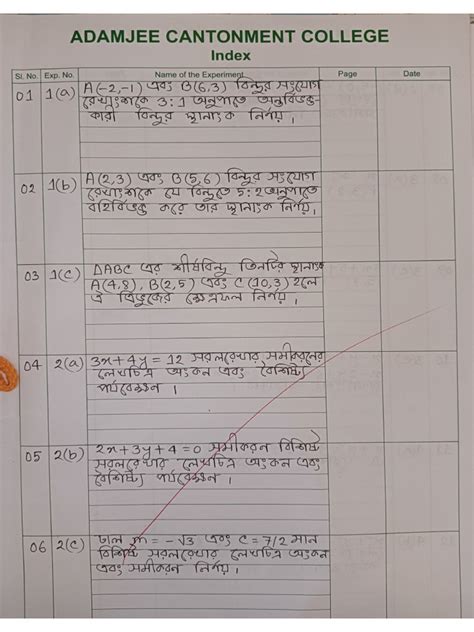 ADAMJEE CANTONMENT COLLEGE
Index
Sl. No. Exp. No. Name of the Experiment Page Date
01 1(a) A(-2,-1) এবং B(6,3) বিন্দুর সংযোগ
রেখাংশকে 3:1 অনুপাতে অন্তর্বিভক্ত-
কারী বিন্দুর স্থানাংক নির্ণয়।
02 1(b) A(2,3) এবং B(5,6) বিন্দুর সংযোগ
রেখাংশকে যে বিন্দুতে 5:2 অনুপাতে
বহির্বিভক্ত করে তার স্থানাংক নির্ণয়।
03 1(c) ΔABC এর শীর্ষবিন্দু তিনটির স্থানাংক
A(4,8), B(2,5) এবং C(10,3) হলে
ঐ ত্রিভুজের ক্ষেত্রফল নির্ণয়।
04 2(a) 3x+4y=12 সরলরেখার সমীকরনের
লেখচিত্র অংকন এবং বৈশিষ্ট্য
পর্যবেক্ষন।
05 2(b) 2x+3y+4=0 সমীকরন বিশিষ্ট
সরলরেখার লেখচিত্র অংকন এবং
বৈশিষ্ট্য পর্যবেক্ষন।
06 2(c) ঢাল m=-√3 এবং c=7/2 মান
বিশিষ্ট সরলরেখার লেখচিত্র অংকন
এবং সমীকরন নির্ণয়।